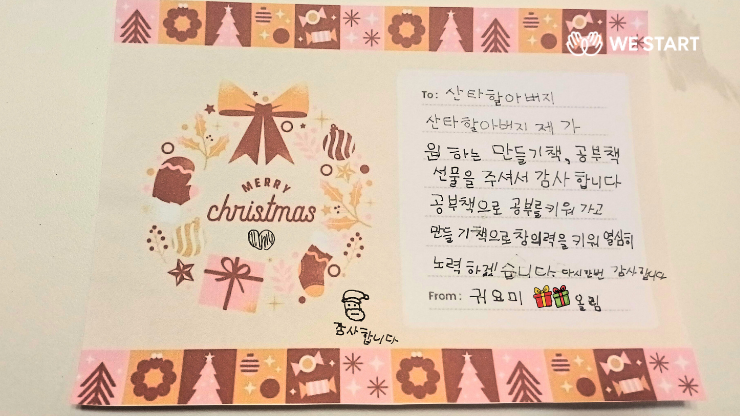 WE START
MERRY
christmas
To: 산타할아버지
산타할아버지 제가
원하는 만들기책, 공부책
선물을 주셔서 감사합니다
공부책으로 공부를 키워 가고
만들기책으로 창의력을 키워 열심히
노력하겠습니다. 다시한번 감사합니다
From: 귀요미 올림
감사합니다